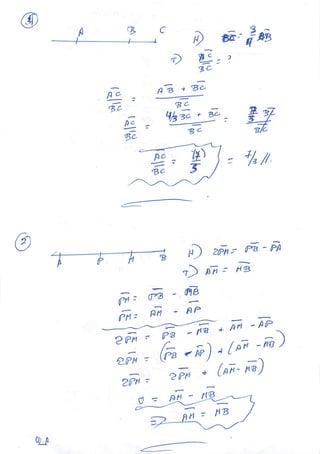 1
A B C
H) BC = 3/4 AB
T) AC/BC = ?
AC/BC = AB + BC / BC
AC/BC = 4/3 BC + BC / BC = 7/3 BC / BC
AC/BC = (7)/3 = 7/3 //.
2
A P M B
H) 2PM = PB - PA
T) AM = MB
PM = PB - MB
PM = AM - AP
2PM = PB - MB + AM - AP
2PM = (PB - AP) + (AM - MB)
2PM = 2PM + (AM - MB)
0 = AM - MB
=> AM = MB